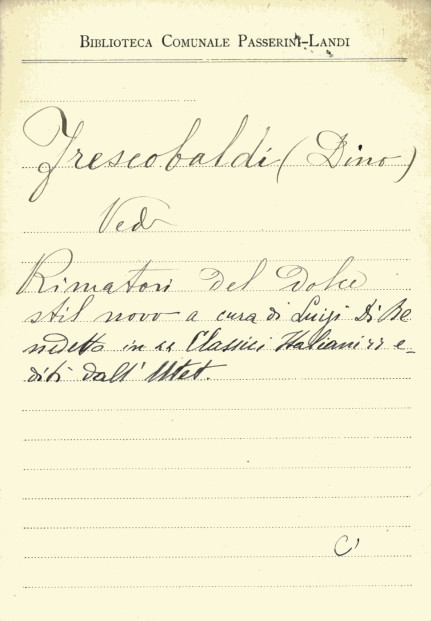 BIBLIOTECA COMUNALE PASSERINI-LANDI
Frescobaldi (Dino)
Vedi
Rimatori del Dolce
stil novo a cura di Luigi Di Be
nedetto in «Classici Italiani» e-
diti dall' Utet.